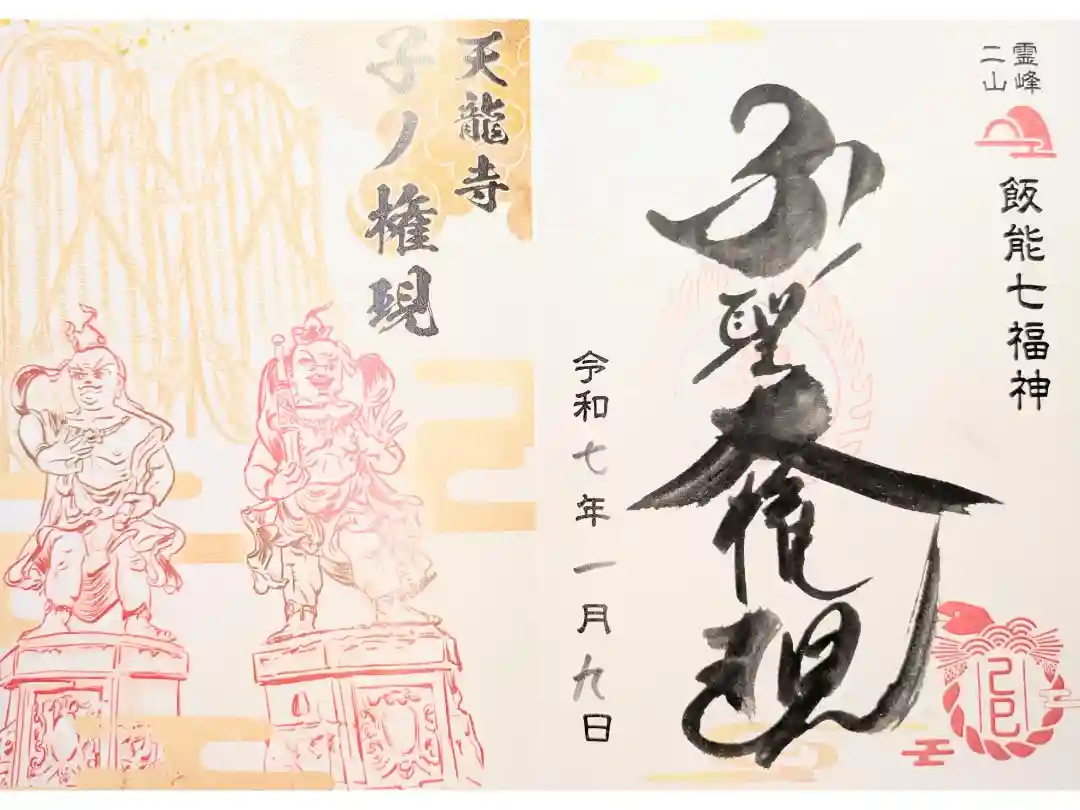 天龍寺
子ノ権現
霊峰
二山
飯能七福神
子聖大権現
令和七年一月九日
己巳